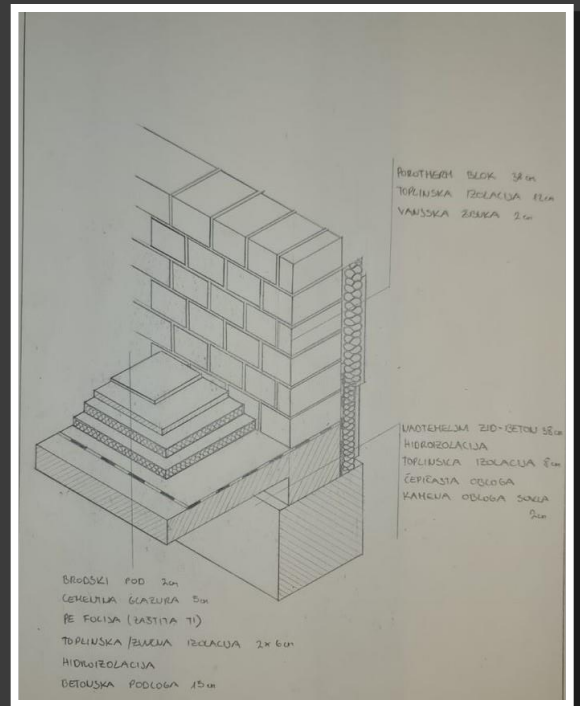 POROTHERM BLOK 38 cm
TOPLINSKA IZOLACIJA 12 cm
VANJSKA ŽBUKA 2 cm
NADTEMELJNI ZID-BETON 38 cm
HIDROIZOLACIJA
TOPLINSKA IZOLACIJA 8 cm
ČEPIČASTA OBLOGA
KAMENA OBLOGA SOKLA
2 cm
BRODSKI POD 2 cm
CEMENTNA GLAZURA 5 cm
PE FOLIJA (ZAŠTITA TI)
TOPLINSKA/ZVUČNA IZOLACIJA 2x6 cm
HIDROIZOLACIJA
BETONSKA PODLOGA 15 cm